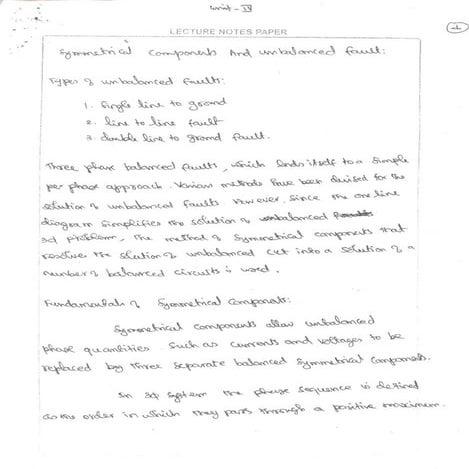 unit - IV
1
LECTURE NOTES PAPER
Symmetrical Components And unbalanced fault:
Types of unbalanced faults:
1. Single line to ground
2. line to line fault
3. double line to ground fault.
Three phase balanced faults, which lends itself to a simple
per phase approach. Various methods have been devised for the
solution of unbalanced faults However, since the one line
diagram simplifies the solution of unbalanced
3ϕ problem, the method of symmetrical components that
resolve the solution of unbalanced ckt into a solution of a
number of balanced circuits is used.
Fundamentals of Symmetrical Components:
Symmetrical components allow unbalanced
phase quantities such as currents and voltages to be
replaced by three separate balanced symmetrical components.
In 3ϕ system the phase sequence is defined
as the order in which they pass through a positive maximum.